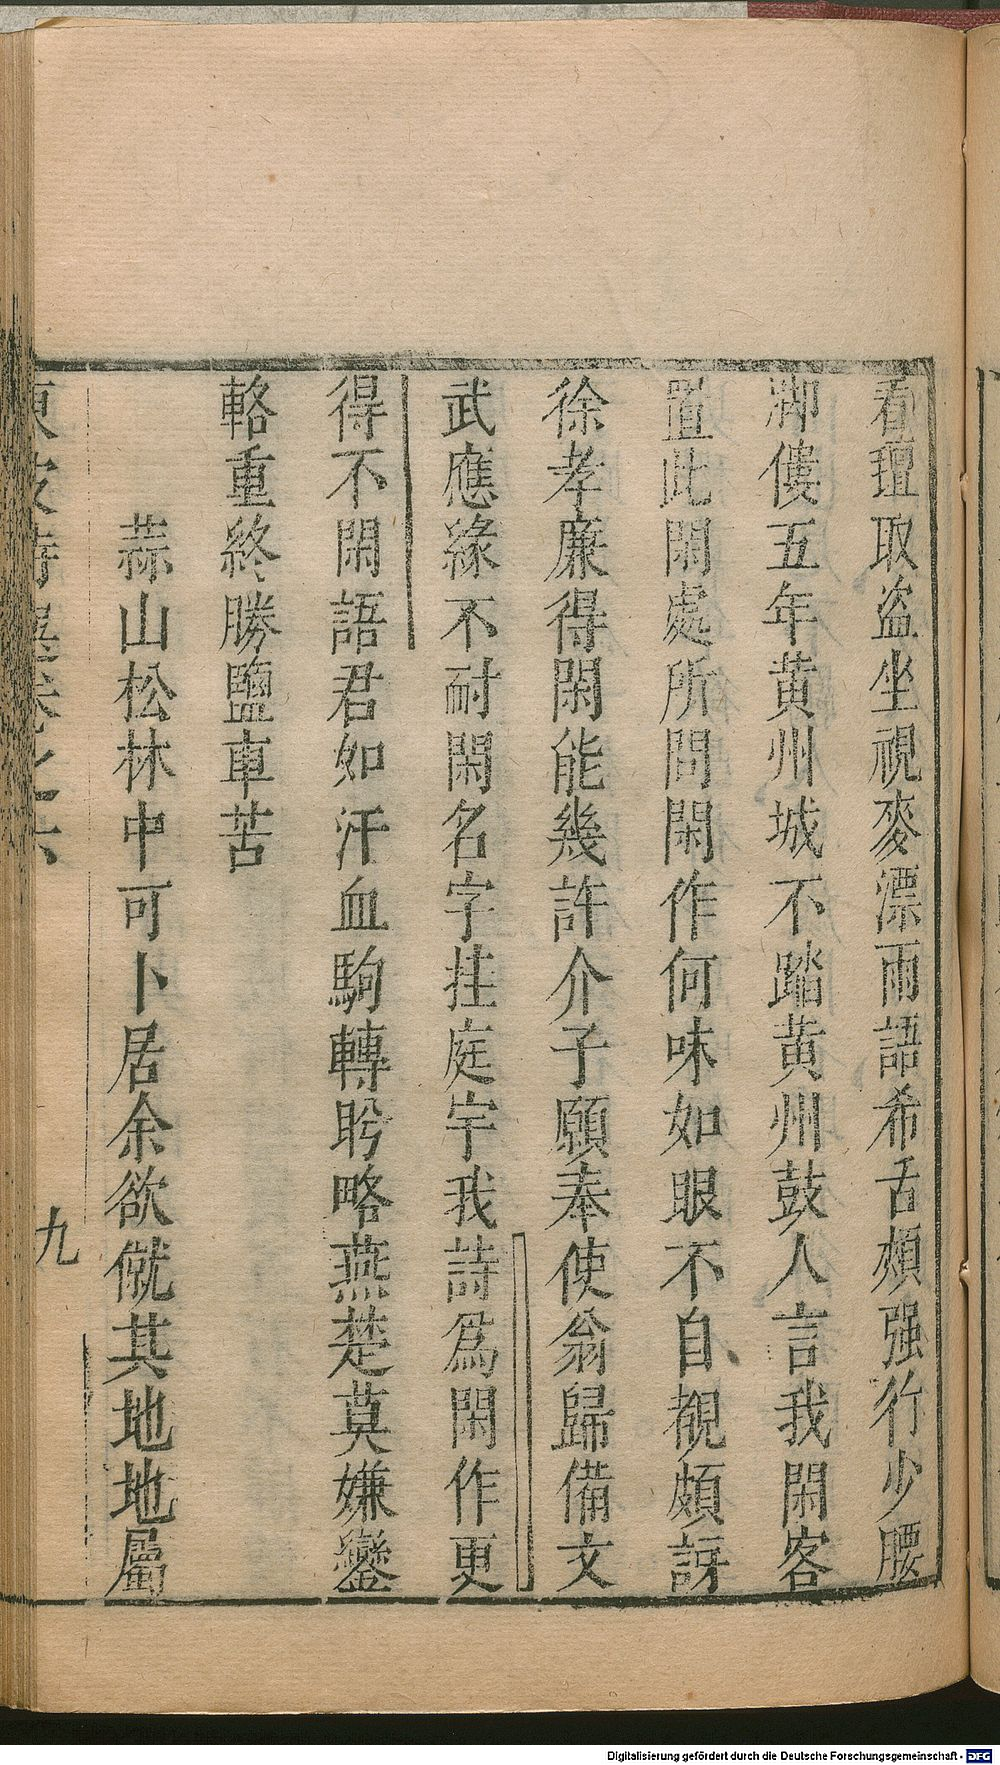 看璮取盗坐視麥漂雨語希舌頰强行少腰
脚僂五年黄州城不踏黄州鼓人言我閑客
置此閑處所問閑作何味如眼不自覩頗訝
徐孝廉得閑能幾許介子願奉使翁歸備文
武應緣不耐閑名字挂庭宇我詩爲閑作更
得不閑語君如汗血駒轉盻略燕楚莫嫌鑾
輅重終勝鹽車苦
蒜山松林中可卜居余欲僦其地地屬
東坡詩選卷之六 九
Digitalisierung gefördert durch die Deutsche Forschungsgemeinschaft - DFG